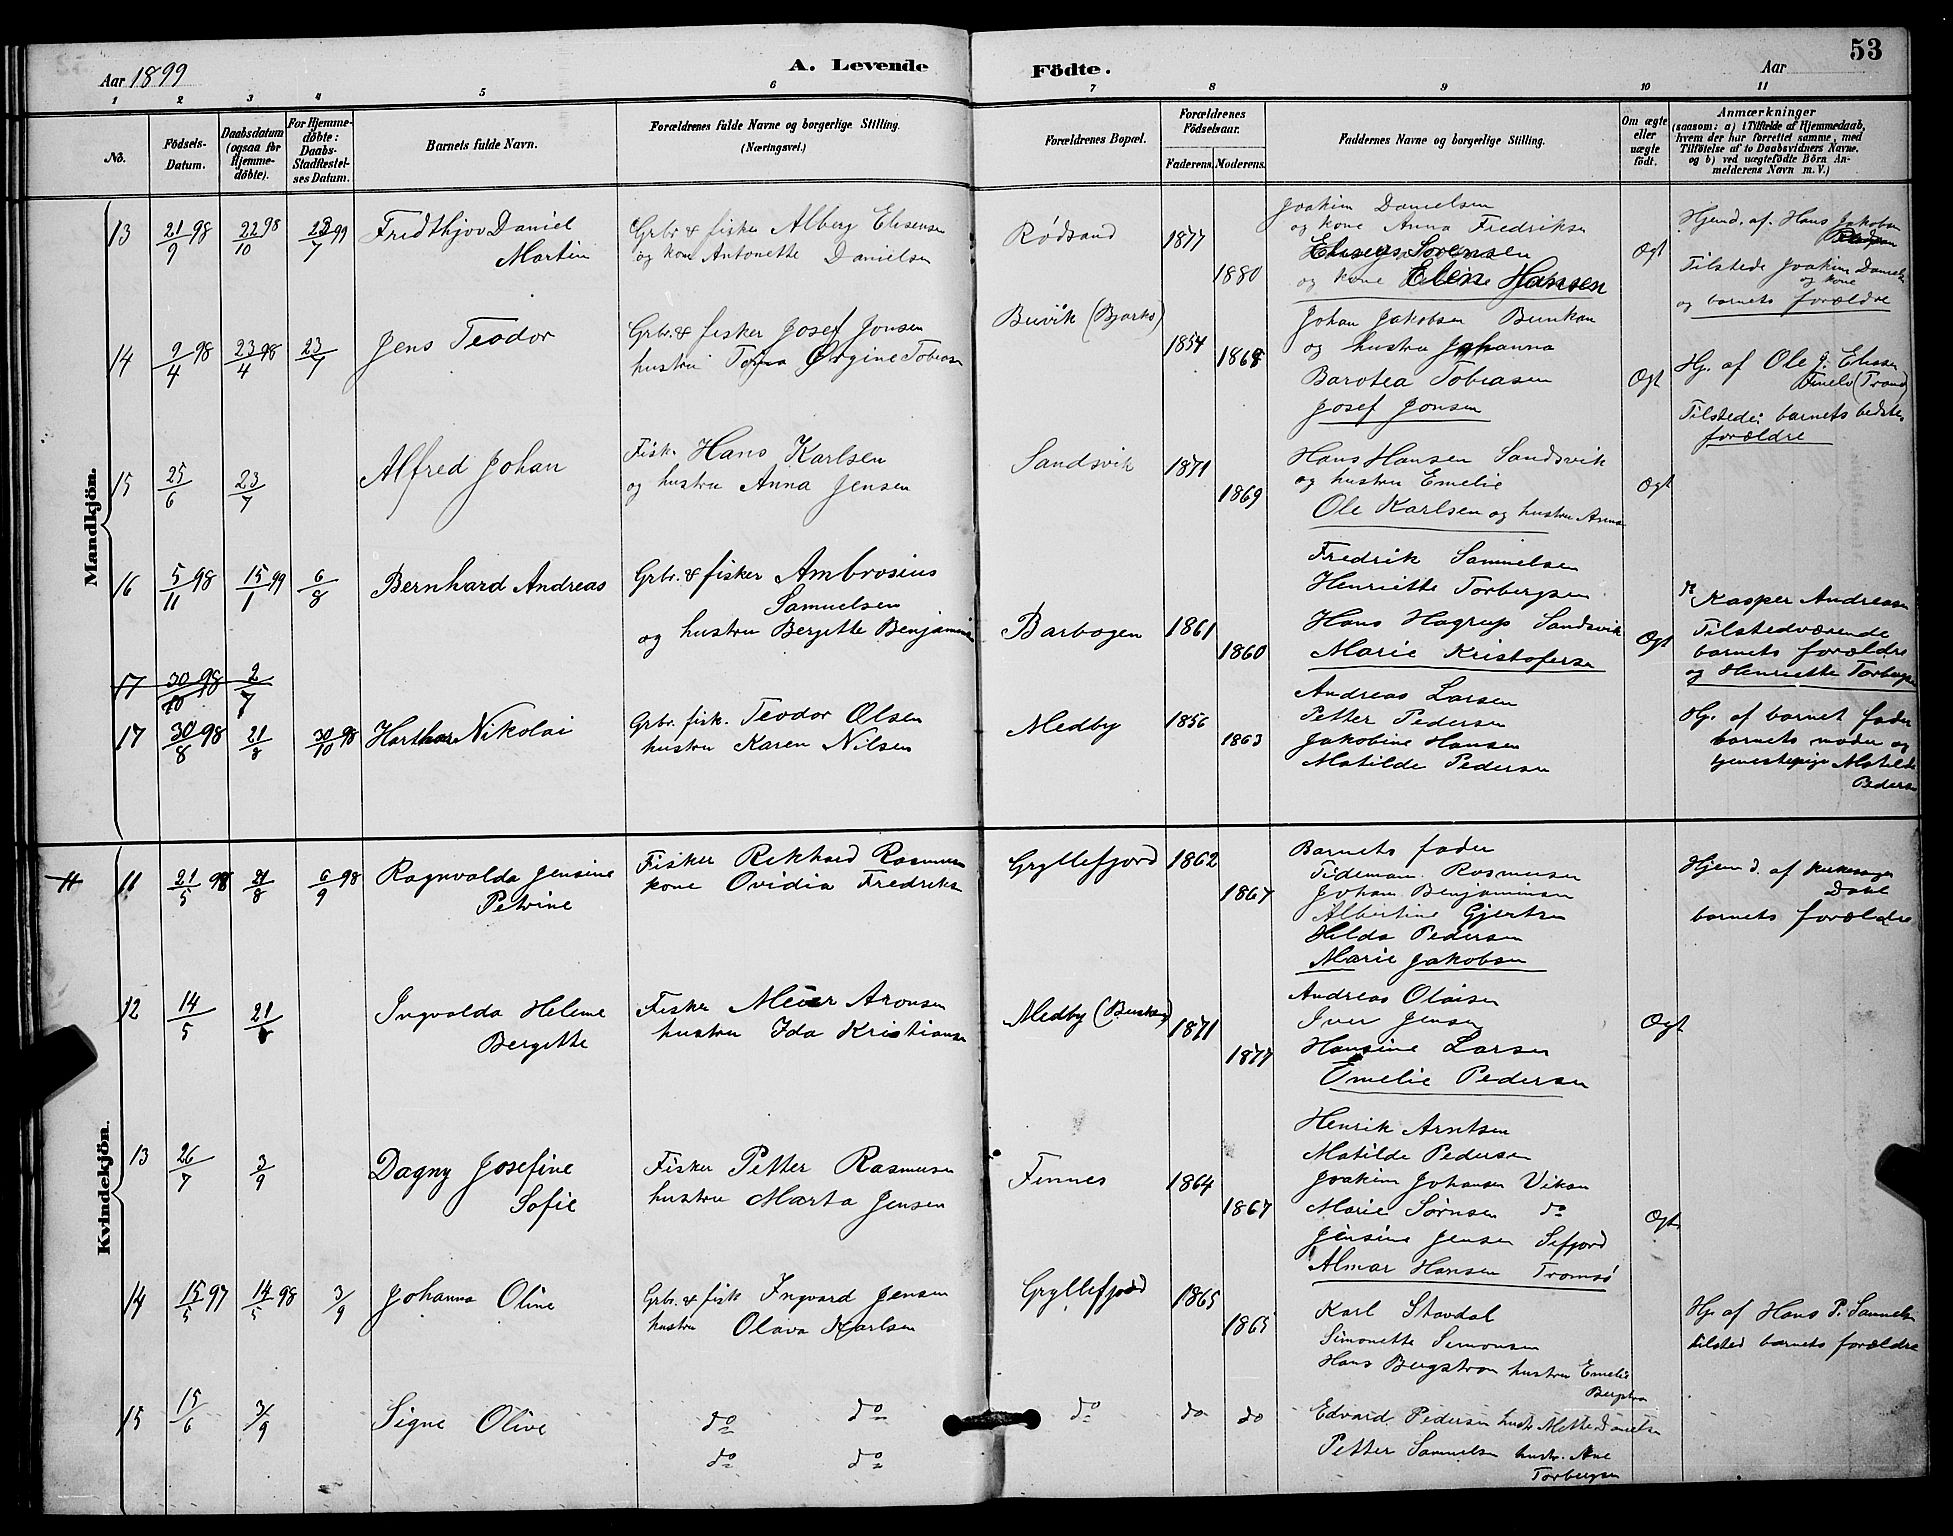 53
Aar 1899
A. Levende Födte.
Aar
1 2 3 4 5 6 7 8 9 10 11
No.
Födsels-Datum.
Daabsdatum (ogsaa for Hjemmedöbte).
For Hjemmedöbte: Daabs-Stadfæstelses Datum.
Barnets fulde Navn.
Forældrenes fulde Navne og borgerlige Stilling. (Næringsvei.)
Forældrenes Bopæl.
Forældrenes Födselsaar.
Faderens. Moderens.
Faddernes Navne og borgerlige Stilling.
Om ægte eller uægte födt.
Anmærkninger
(saasom: a) i Tilfælde af Hjemmedaab, hvem der har forrettet samme, med Tilföielse af to Daabsvidners Navne, og b) ved uægtefödte Börn Anmelderens Navn m. V.)
Mandkjön.
13 21/9 98 22/10 98 23/7 99
Fridthjov Daniel
Martin
Grbr. & fisker Alberg Elisensen
og kone Antonette Danielsen
Rødsand
1877
1880
Joakim Danielsen
og kone Anna Fredriksen
Eliseus Sørensen
og kone Elen Hansen
Øgt
Hjemd. af. Hans Jakobsen
Tilstede Joakim Danielsen
og kone
og barnets forældre
14 9/4 98 23/4 98 23/7
Jens Teodor
Grbr. & fisker Josef Jonsen
hustru Torgine Tobiasen
Buvik (Bjarkø)
1854
1868
Johan Jakobsen Bunkan
og hustru Johanna
Barotea Tobiasen
Josef Jonsen
Øgt
Hj. af Ole J. Eliasen
Tilstede: barnets bedste
forældre
15 25/6 23/7
Alfred Johan
Fisk. Hans Karlsen
og hustru Anna Jensen
Sandsvik
1871
1869
Hans Hansen Sandsvik
og hustru Emelie
Ole Karlsen og hustru Anna
Øgt
16 5/11 98 15/1 99 6/8
Bernhard Andreas
Grbr. & fisker Ambrosius
Samuelsen
og hustru Bergitte Benjaminsen
Barbogen
1861
1860
Fredrik Samuelsen
Henriette Torbergsen
Hans Hagrup Sandsvik
Marie Kristofersen
Øgt
Kasper Andreasen
Tilstedværende
barnets forældre
og Henriette Torbergsen
17 30/10 98 2/7
17 30/8 98 21/8 30/10 98
Harthar Nikolai
Grbr. fisk. Teodor Olsen
hustru Karen Nilsen
Medby
1856
1863
Andreas Larsen
Petter Pedersen
Jakobine Hansen
Matilde Pedersen
Hj. af barnet fader
barnets moder og
tjenestepige Matilde
Pedersen
Kvindekjön.
11 11 21/5 98 21/8 6/9 98
Ragnvalda Jensine
Petrine
Fisker Rikhard Rasmusen
kone Ovidia Fredriksen
Gryllefjord
1862
1867
Barnets fader
Tideman Rasmusen
Johan Benjaminsen
Albertine Gjertsen
Hilda Pedersen
Marie Jakobsen
Hjemd. af kirkesanger
Dahl
barnets forældre
12 14/5 21/8
Ingvalda Helene
Bergitte
Fisker Meier Aronsen
hustru Ida Kristiansen
Medby
1871
1877
Andreas Olaisen
Iver Jensen
Hansine Larsen
Emelie Pedersen
Øgt
13 26/7 3/9
Dagny Josefine
Sofie
Fisker Petter Rasmusen
hustru Marta Jensen
Finnes
1864
1867
Henrik Arntsen
Matilde Pedersen
Joakim Johansen Viken
Marie Sørnsen do
Jensine Jensen Sifjord
Almar Hansen Tromsø
Øgt
14 15/5 97 14/5 98 3/9
Johanna Oline
Grbr. & fisk Ingvard Jensen
hustru Olava Karlsen
Gryllefjord
1865
1865
Karl Stavdal
Simonette Simonsen
Hans Bergstrøm hustru Emelie
Bergstrøm
Hj. af Hans P. Samuelsen
tilsted barnets forældre
15 15/6 3/9
Signe Olive
do do
do do
do
do do
Edvard Pedersen hustr. Mette Danielsen
Petter Samuelsen hustr. Ane
Torbergsen